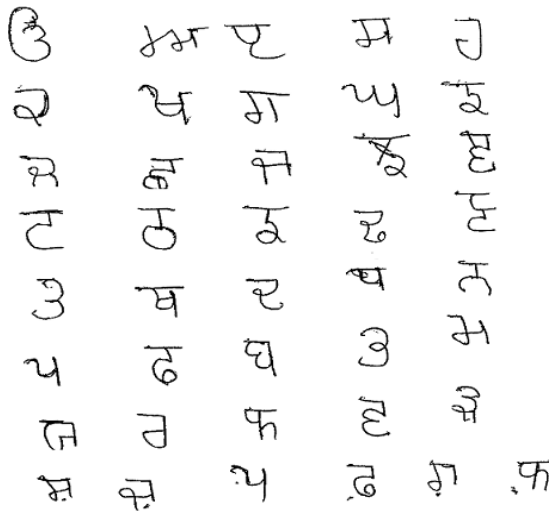 ੳ ਅ ੲ ਸ ਹ
ਕ ਖ ਗ ਘ ਙ
ਚ ਛ ਜ ਝ ਞ
ਟ ਠ ਡ ਢ ਣ
ਤ ਥ ਦ ਧ ਨ
ਪ ਫ ਬ ਭ ਮ
ਯ ਰ ਲ ਵ ੜ
ਸ਼ ਜ਼ ਖ਼ ਫ਼ ਗ਼ ਲ਼